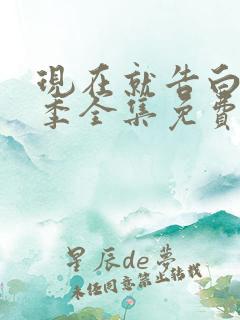 現在就告白
季全集免費
星辰de夢
未经同意禁止转载